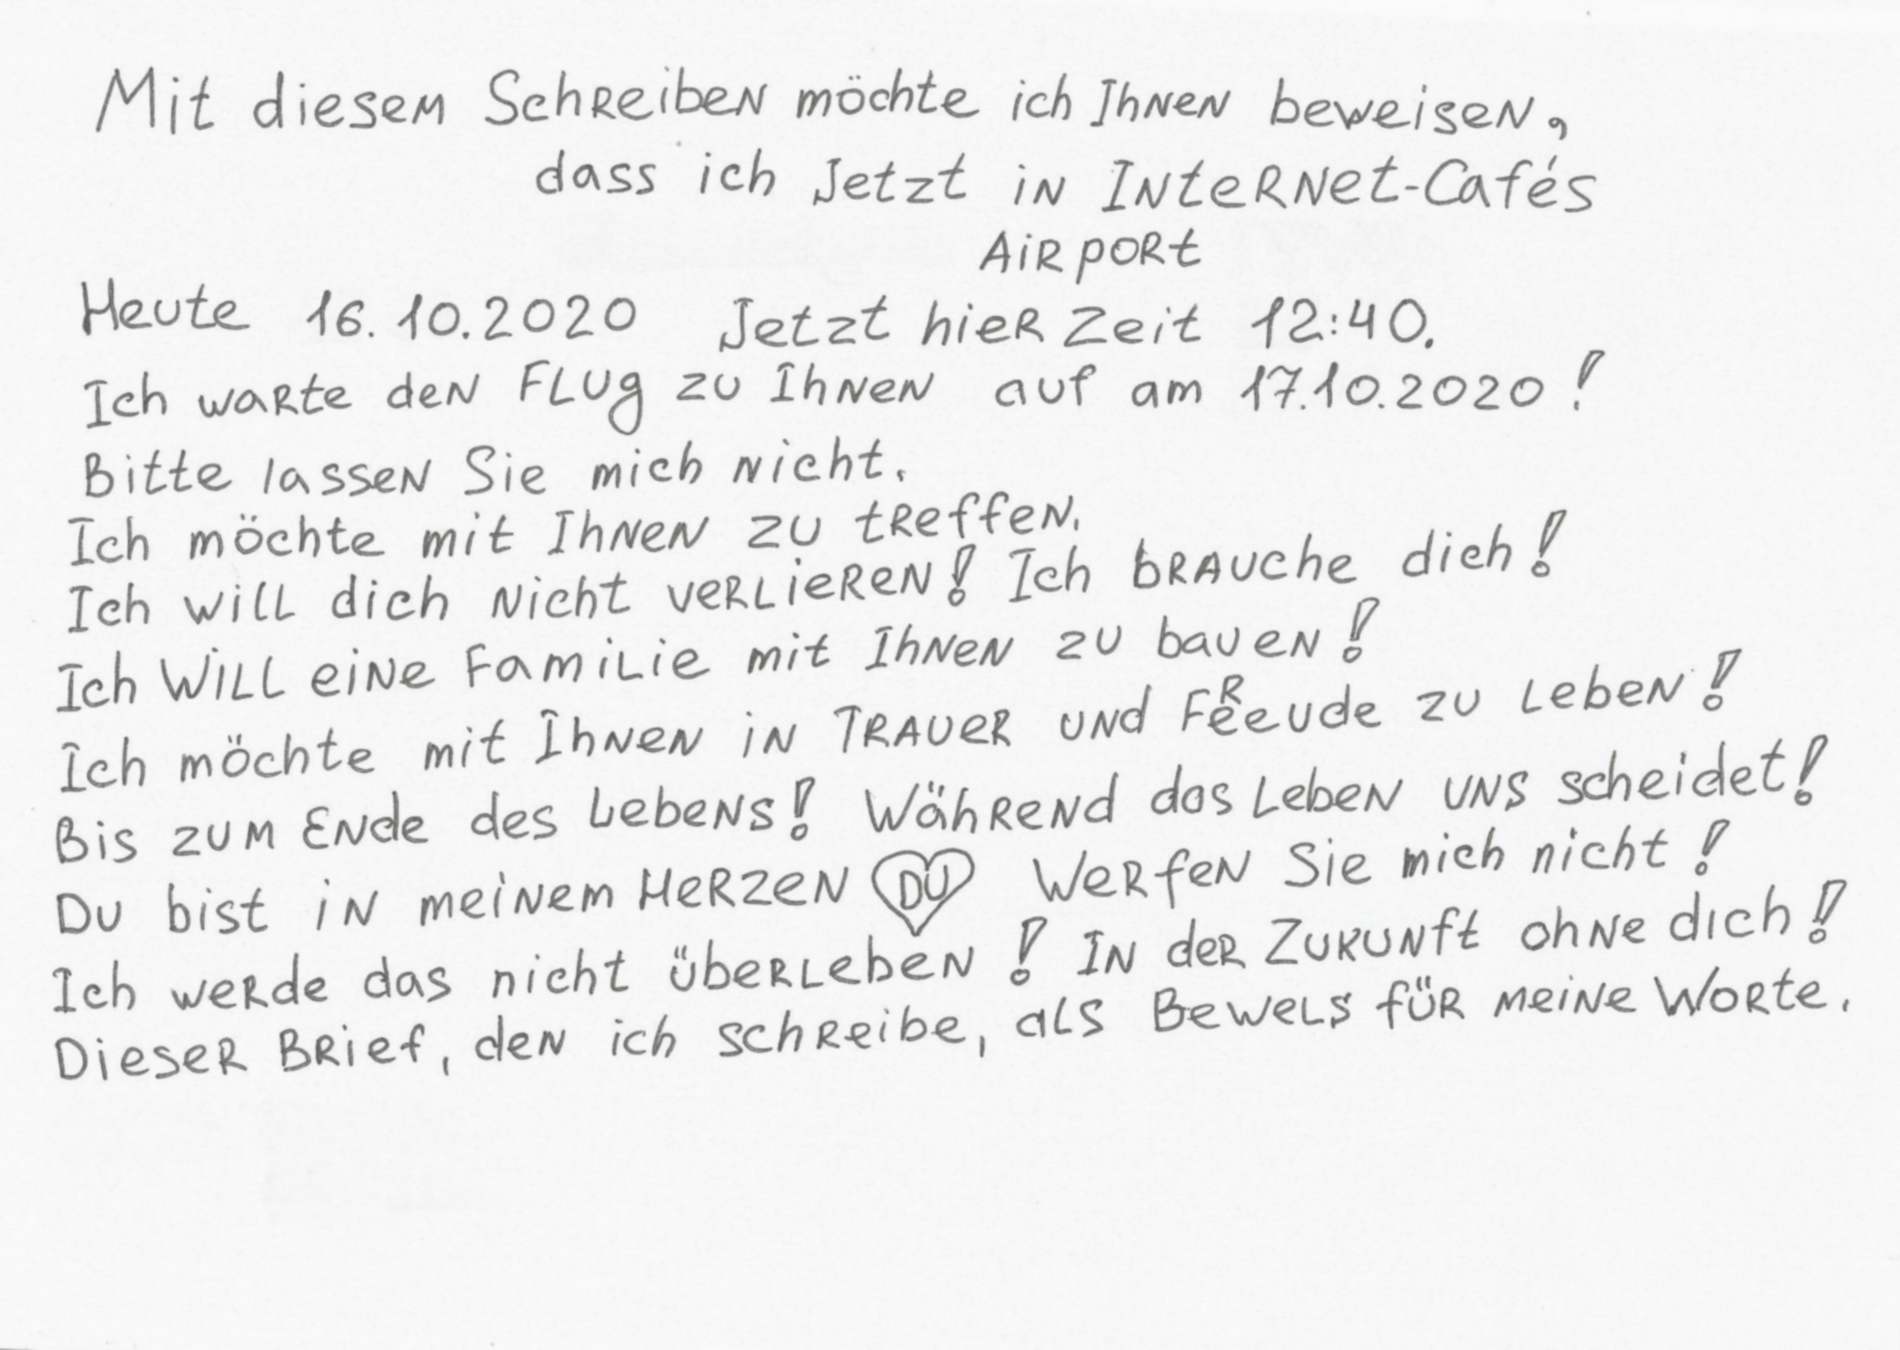 Mit diesem Schreiben möchte ich Ihnen beweisen,
dass ich Jetzt in Internet-Cafés
Airport
Heute 16.10.2020 Jetzt hier Zeit 12:40.
Ich warte den Flug zu Ihnen auf am 17.10.2020!
Bitte lassen Sie mich nicht.
Ich möchte mit Ihnen zu treffen.
Ich will dich nicht verlieren! Ich brauche dich!
Ich will eine Familie mit Ihnen zu bauen!
Ich möchte mit Ihnen in Trauer und Freude zu leben!
Bis zum Ende des Lebens! Während das Leben uns scheidet!
Du bist in meinem Herzen DU Werfen Sie mich nicht!
Ich werde das nicht überleben! In der Zukunft ohne dich!
Dieser Brief, den ich schreibe, als Bewels für meine Worte.